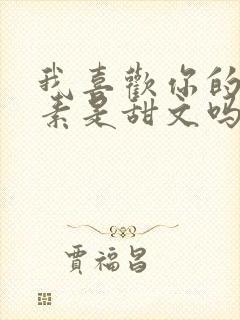 我喜歡你的
素是甜文吗
賈福昌